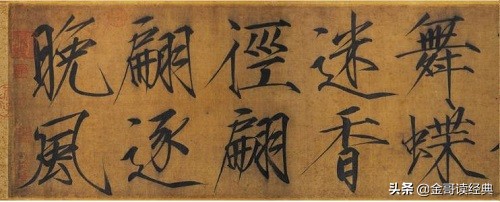 舞蝶
迷香
徑翩
翩逐
晚風
头条 @金哥读经典